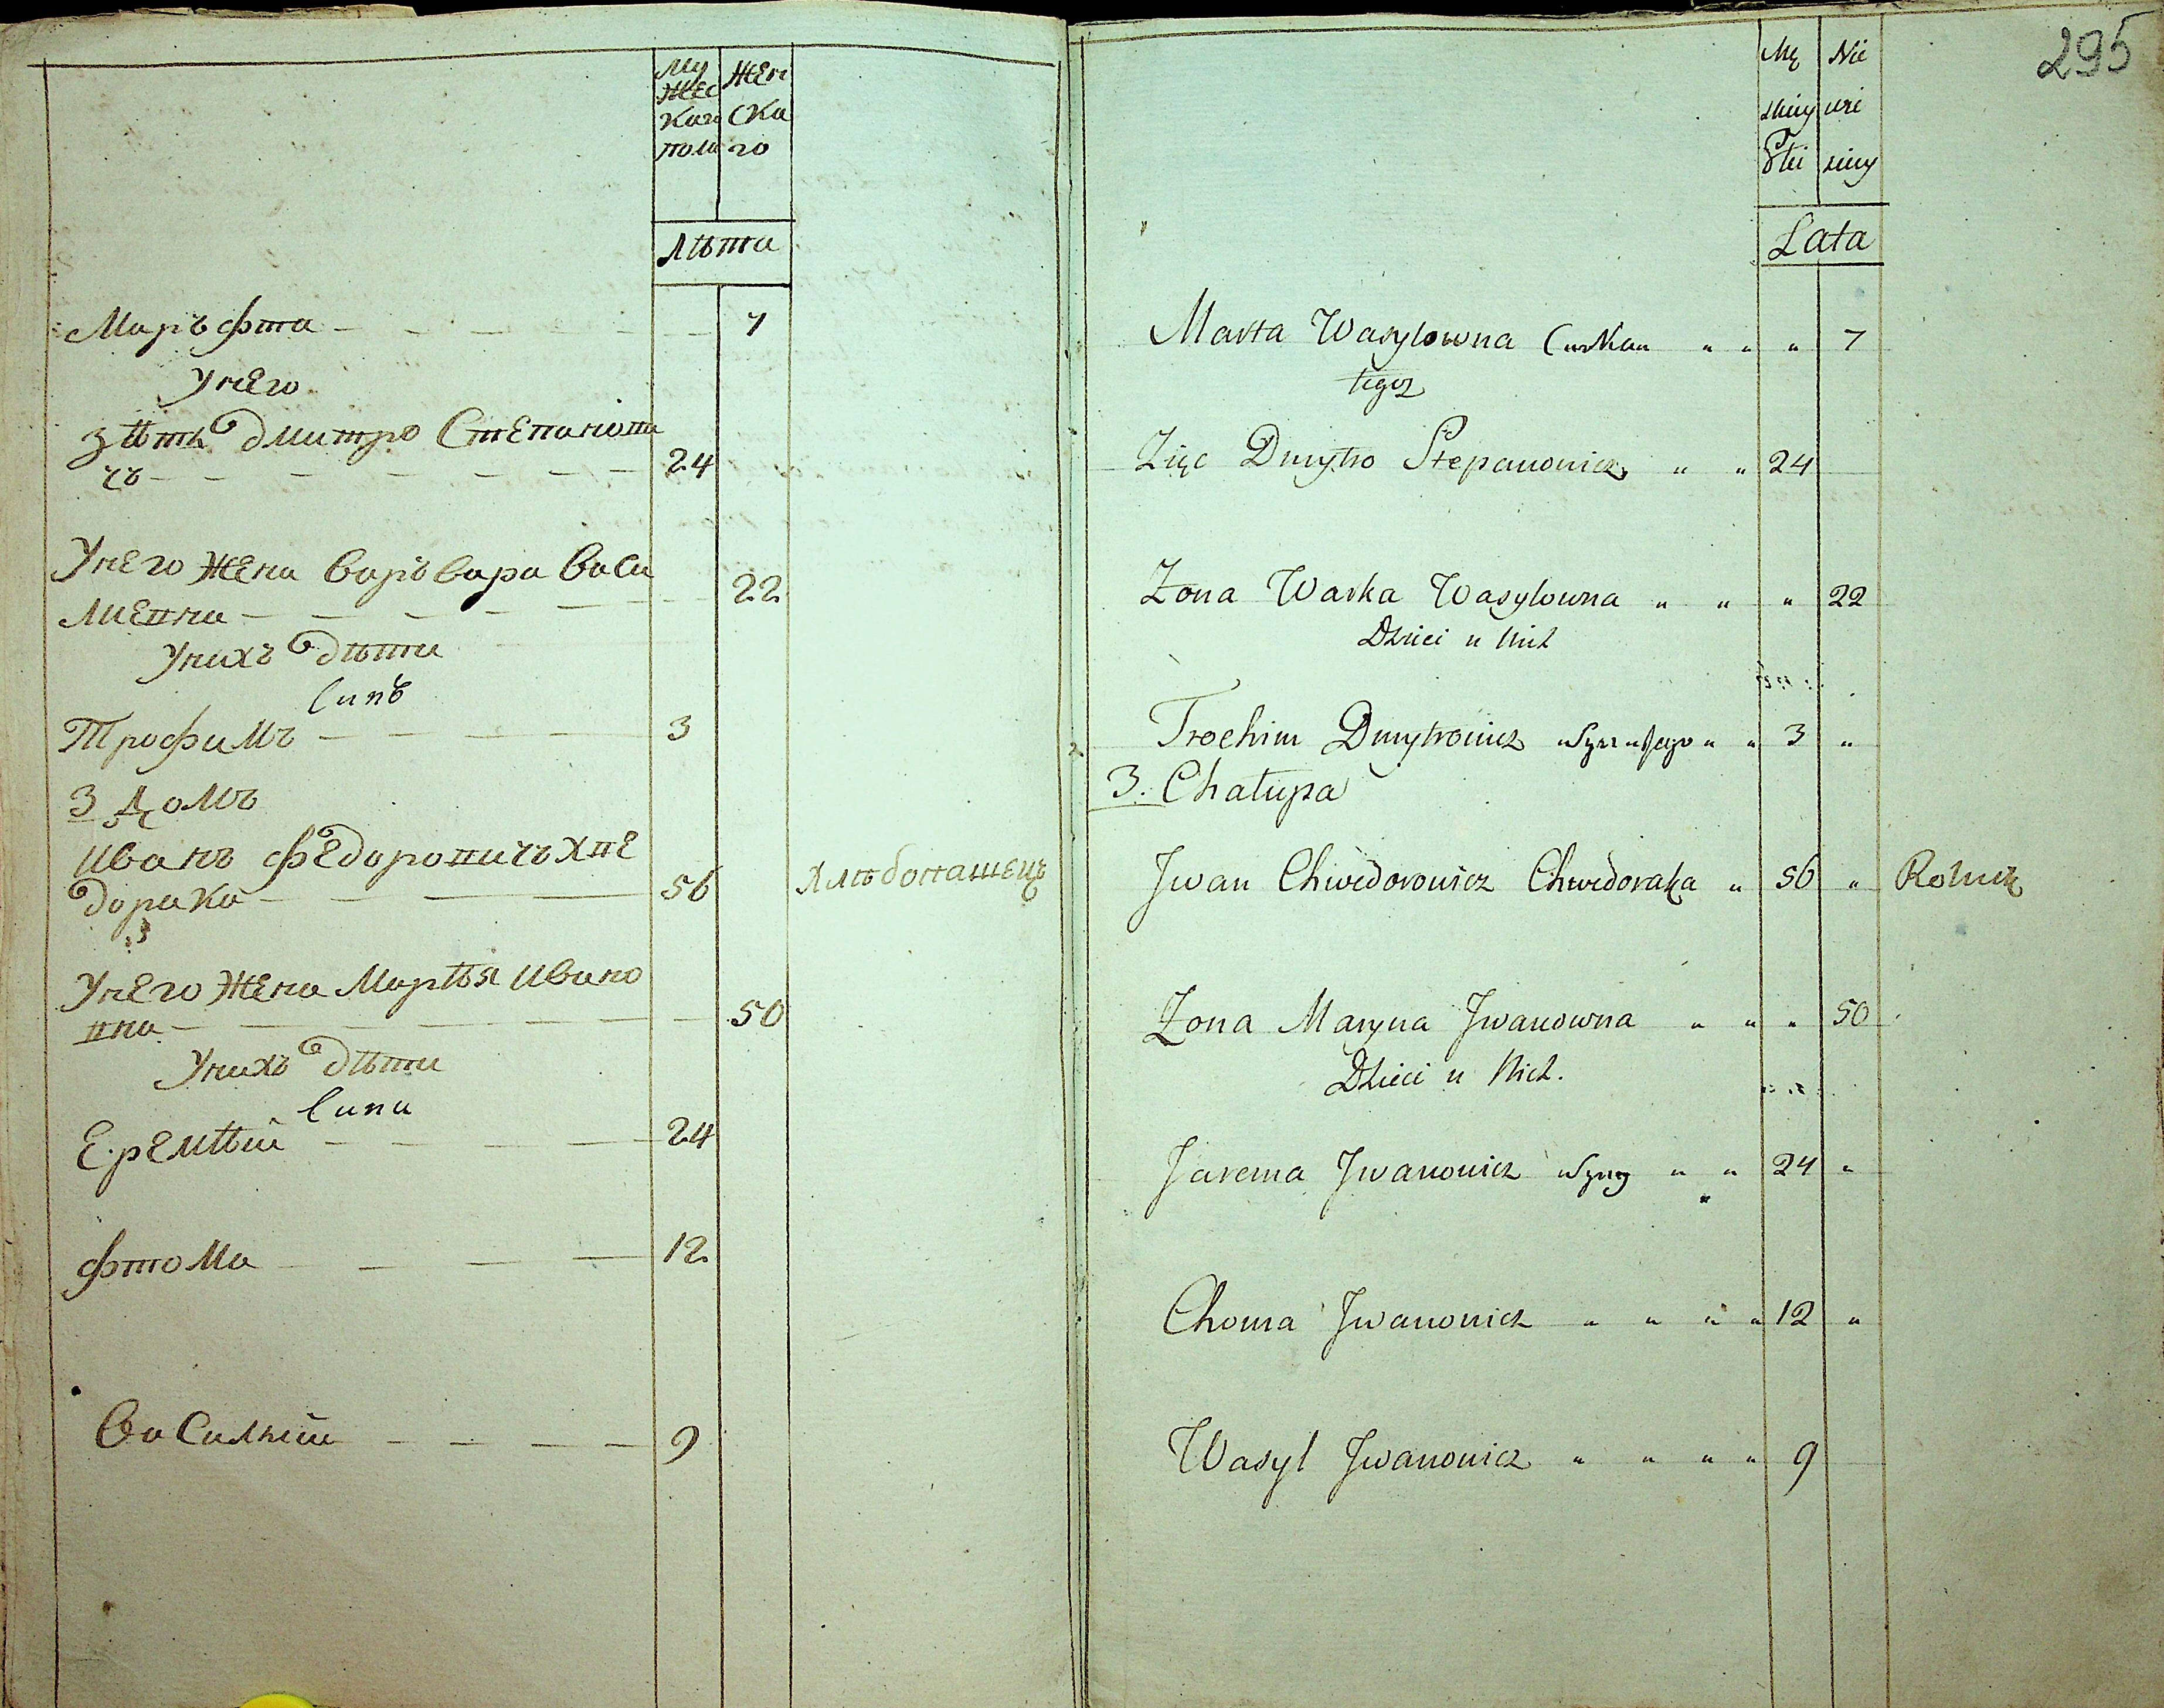 Му Жен
жес ска
каго го
пола
Лѣта
Маръфта 7
У него
зѣть дмитро Степанови
чъ 24
У него жена варъвара васи
лиевна 22
У нихъ дѣти
Синъ
Трофимъ 3
3 Домъ
Иванъ федоровичъ хве
дорака 56 Хлѣбопашецъ
У него жена Марѣя Ивано
вна 50
У нихъ дѣти
Сини
Еремѣй 24
фтома 12
Василий 9
295
Mę Nie
skiey wie
Płci sciey
Lata
Marta Wasylowna Curka 7
tegoz
Zięc Dmytro Stepanowicz 24
Zona Warka Wasylowna 22
Dzieci u Nich
Trochim Dmytrowicz Syn Jego 3
3. Chałupa
Jwan Chwedorowicz Chwedoraka 56 Rolnik
Zona Maryna Jwanowna 50
Dzieci u Nich.
Jarema Jwanowicz Syny 24
Choma Jwanowicz 12
Wasyl Jwanowicz 9